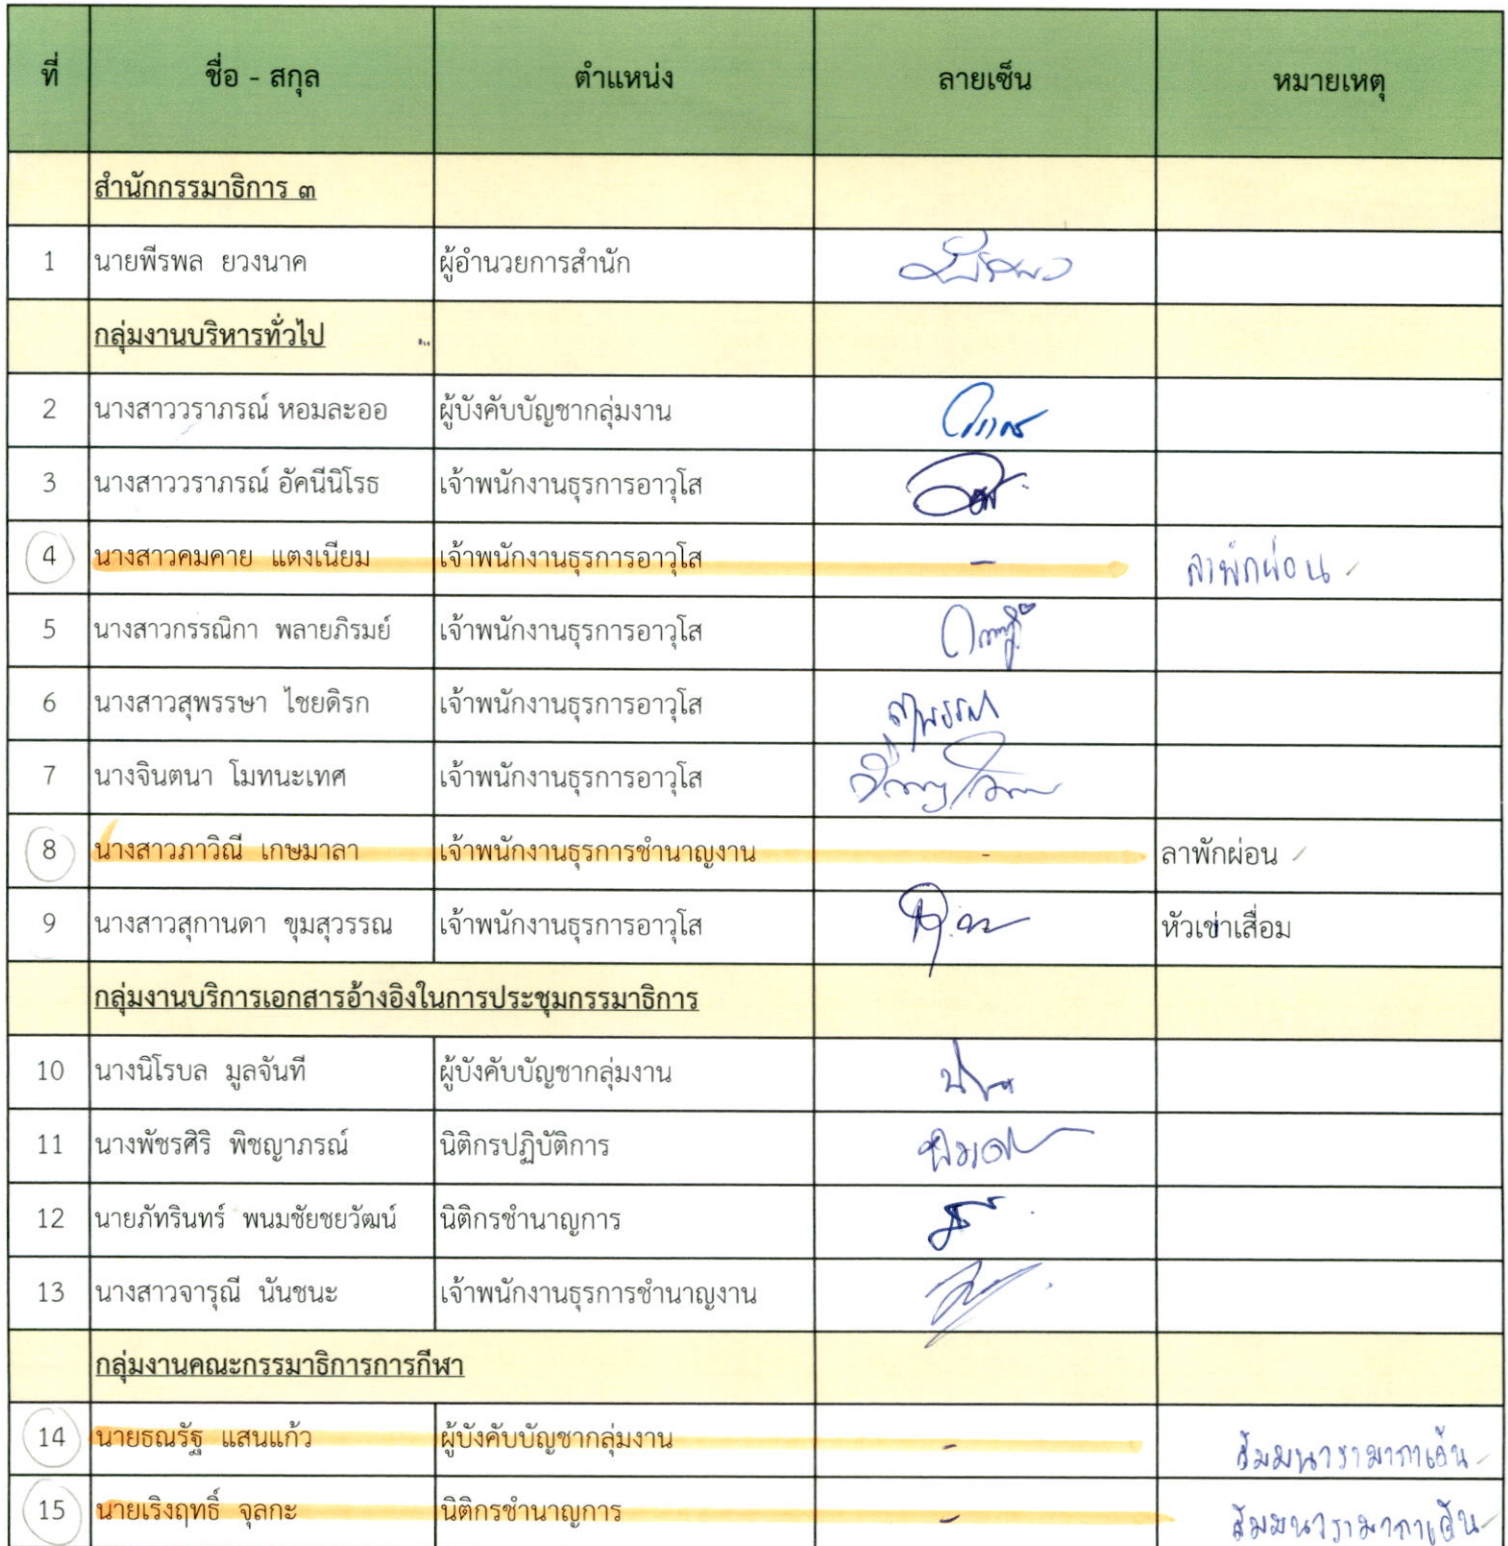 ที่ ชื่อ - สกุล ตำแหน่ง ลายเซ็น หมายเหตุ
สำนักกรรมาธิการ ๓
1 นายพีรพล ยวงนาค ผู้อำนวยการสำนัก
กลุ่มงานบริหารทั่วไป
2 นางสาววราภรณ์ หอมละออ ผู้บังคับบัญชากลุ่มงาน
3 นางสาววราภรณ์ อัคนีนิโรธ เจ้าพนักงานธุรการอาวุโส
4 นางสาวคมคาย แตงเนียม เจ้าพนักงานธุรการอาวุโส - ลาพักผ่อน
5 นางสาวกรรณิกา พลายภิรมย์ เจ้าพนักงานธุรการอาวุโส
6 นางสาวสุพรรษา ไชยดิรก เจ้าพนักงานธุรการอาวุโส
7 นางจินตนา โมทนะเทศ เจ้าพนักงานธุรการอาวุโส
8 นางสาวภาวิณี เกษมาลา เจ้าพนักงานธุรการชำนาญงาน - ลาพักผ่อน
9 นางสาวสุกานดา ขุมสุวรรณ เจ้าพนักงานธุรการอาวุโส หัวเข่าเสื่อม
กลุ่มงานบริการเอกสารอ้างอิงในการประชุมกรรมาธิการ
10 นางนิโรบล มูลจันที ผู้บังคับบัญชากลุ่มงาน
11 นางพัชรศิริ พิชญาภรณ์ นิติกรปฏิบัติการ
12 นายภัทรินทร์ พนมชัยชยวัฒน์ นิติกรชำนาญการ
13 นางสาวจารุณี นันชนะ เจ้าพนักงานธุรการชำนาญงาน
กลุ่มงานคณะกรรมาธิการการกีฬา
14 นายธณรัฐ แสนแก้ว ผู้บังคับบัญชากลุ่มงาน -
15 นายเริงฤทธิ์ จุลกะ นิติกรชำนาญการ -